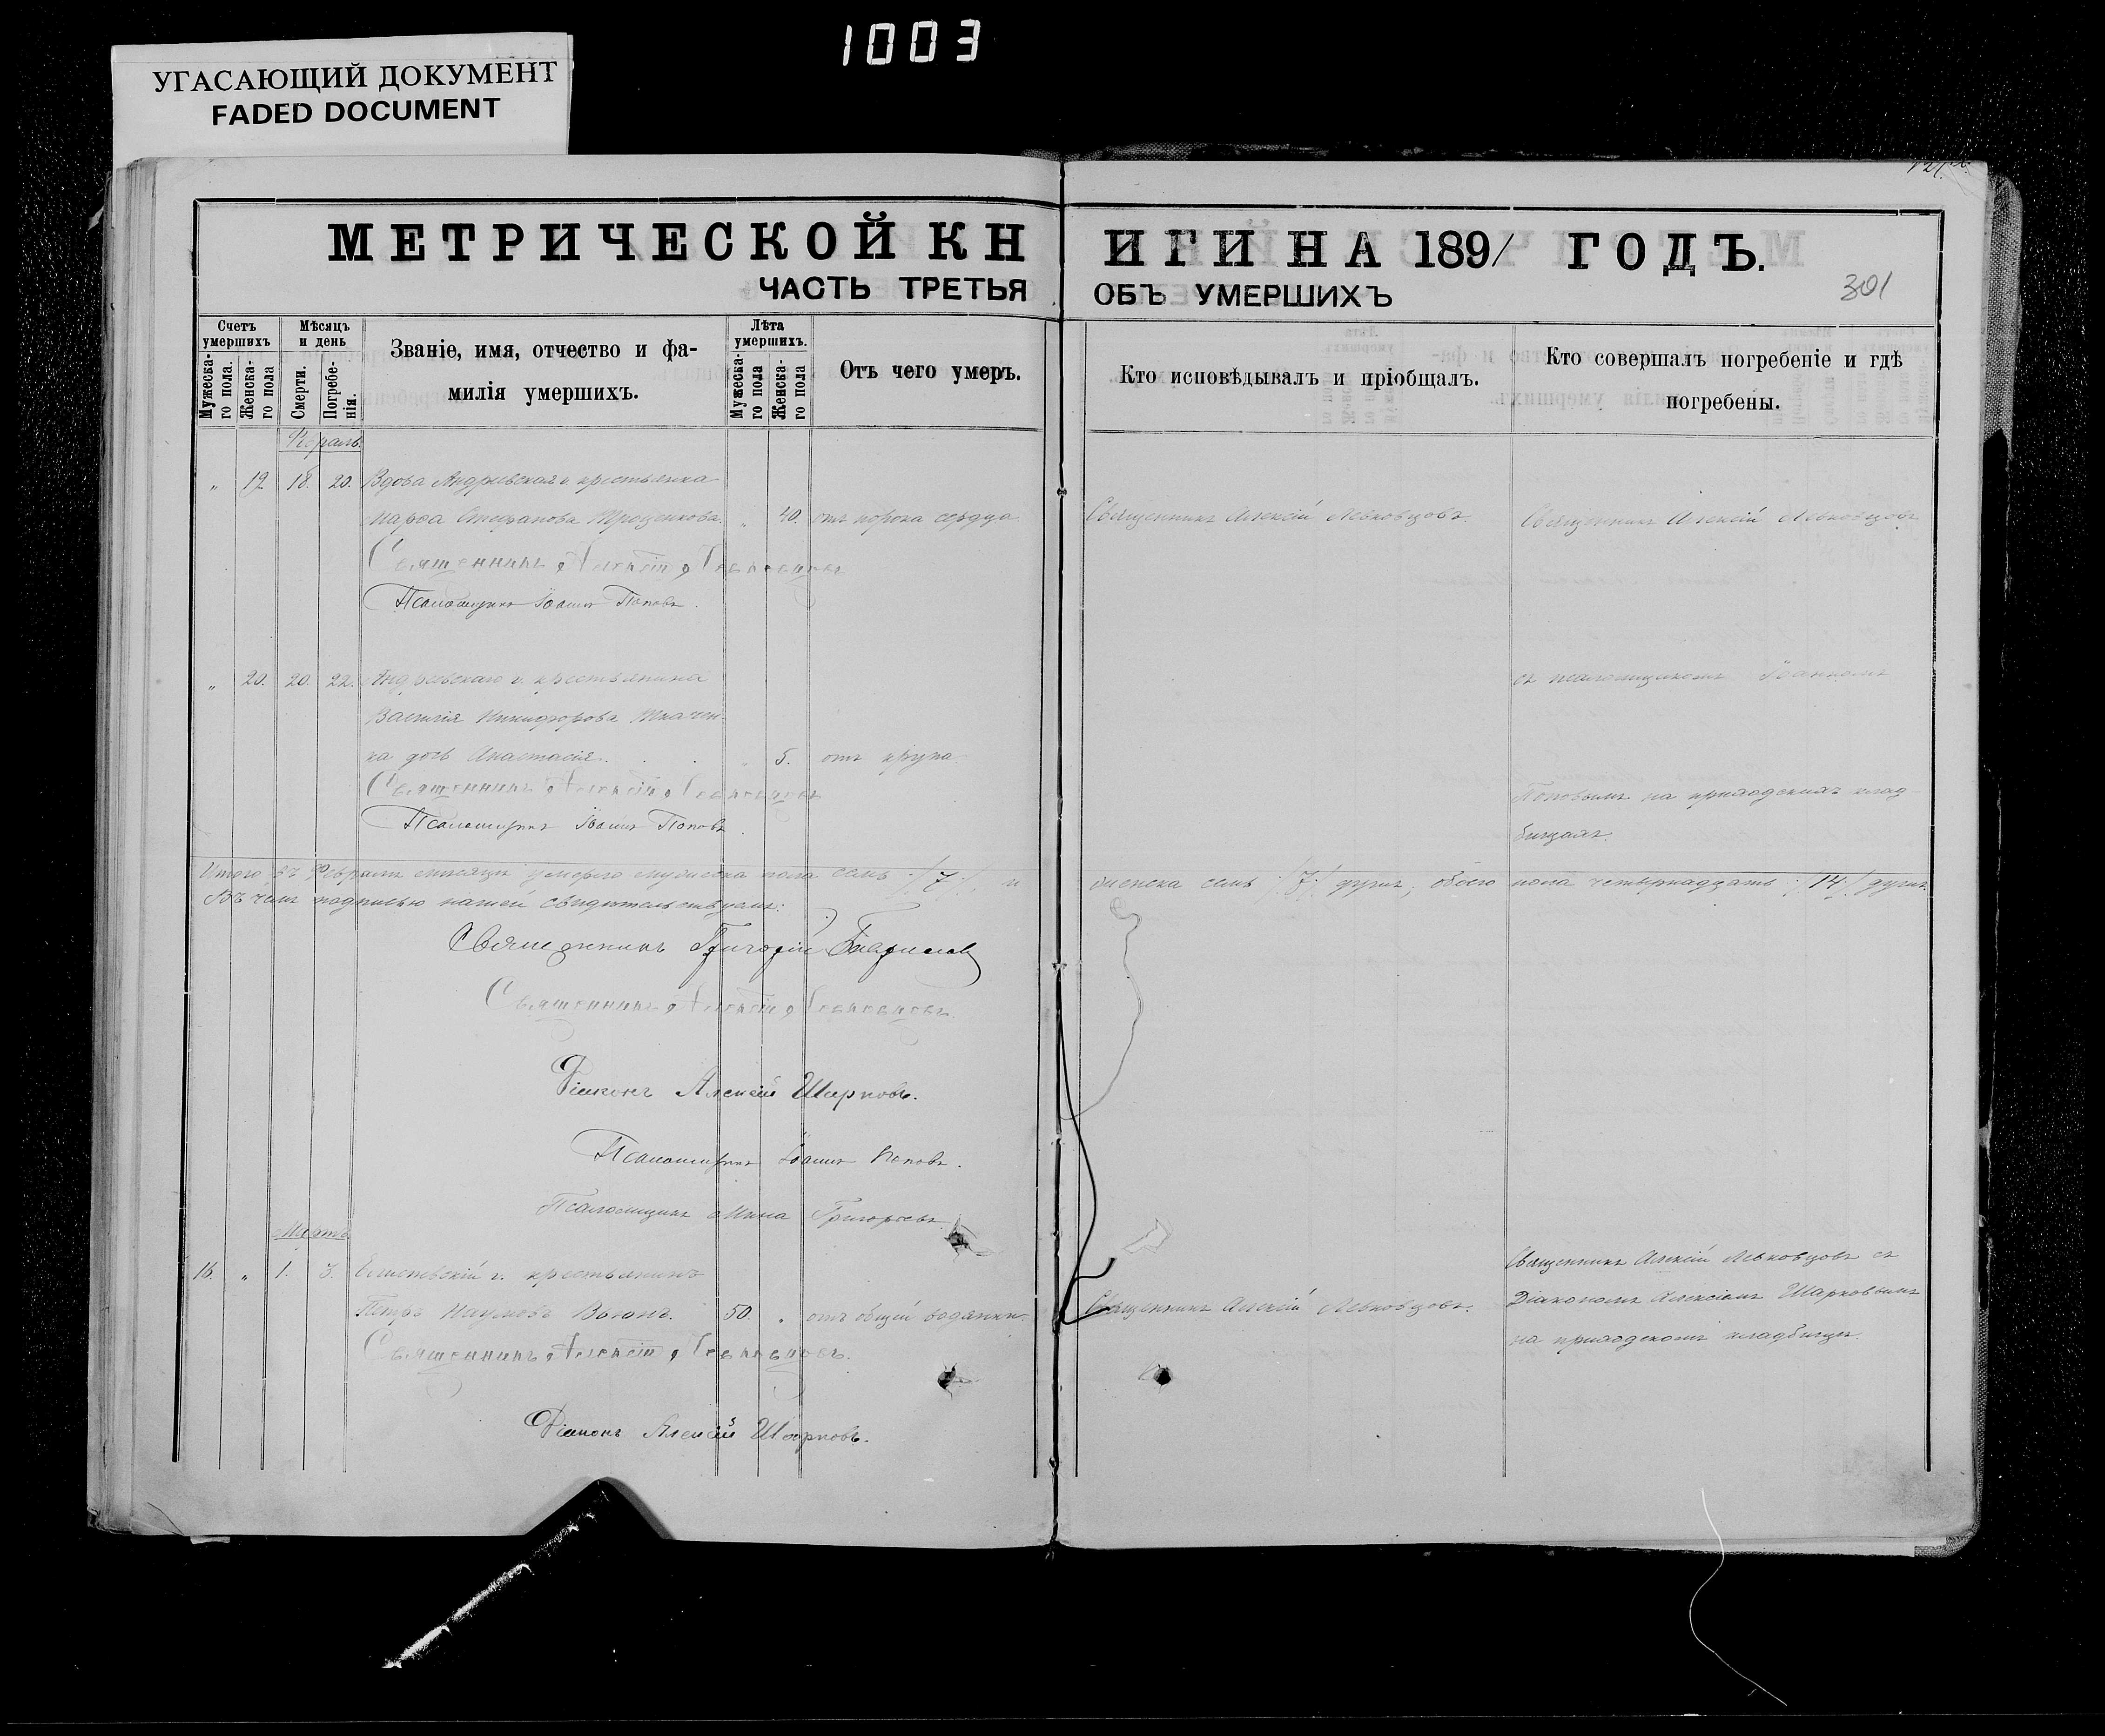 1003
УГАСАЮЩИЙ ДОКУМЕНТ
FADED DOCUMENT
МЕТРИЧЕСКОЙ КН ИГИ НА 1891 ГОДЪ.
ЧАСТЬ ТРЕТЬЯ ОБЪ УМЕРШИХЪ
301
Счетъ умершихъ
Мужеска-го пола.
Женска-го пола
Мѣсяцъ и день
Смерти.
Погребе-нія.
Званіе, имя, отчество и фа-
милія умершихъ.
Лѣта умершихъ.
Мужеска-го пола
Женска-го пола
Отъ чего умеръ.
Кто исповѣдывалъ и пріобщалъ.
Кто совершалъ погребеніе и гдѣ
погребены.
" 19 18. 20. Вдова Андреевская с. крестьянка
Марѳа Стефанова Троценкова. " 40. отъ порока сердца Священникъ Алексій Левковцовъ. Священникъ Алексій Левковцовъ
Священникъ Алексій Левковцовъ
Псаломщикъ Іоаннъ Поповъ.
" 20. 20. 22. Андреевскаго с. крестьянина съ псаломщикомъ Іоанномъ
Василія Никифорова Ткачен-
ка дочь Анастасія. " 5. отъ крупа
Священникъ Алексій Левковцовъ Поповымъ на приходскихъ клад-
Псаломщикъ Іоаннъ Поповъ. бищахъ.
Итого въ Февралѣ мѣсяцѣ умерло мужеска пола семь /7/ и женска семь /7/ душъ, обоего пола четырнадцать /14/ душъ.
Въ чемъ подписью нашей свидѣтельствуемъ:
Священникъ Григорій
Священникъ Алексій Левковцовъ.
Діаконъ Алексій Шарковъ.
Псаломщикъ Іоаннъ Поповъ.
Псаломщикъ Мина Григорьевъ
Мартъ
Священникъ Алексій Левковцовъ съ
16. " 1. 3. с. крестьянинъ
Петръ Наумовъ 50. " отъ общей водянки. Священникъ Алексій Левковцовъ. Діакономъ Алексіемъ Шарковымъ
на приходскомъ кладбищѣ.
Священникъ Алексій Левковцовъ.
Діаконъ Алексій Шарковъ.